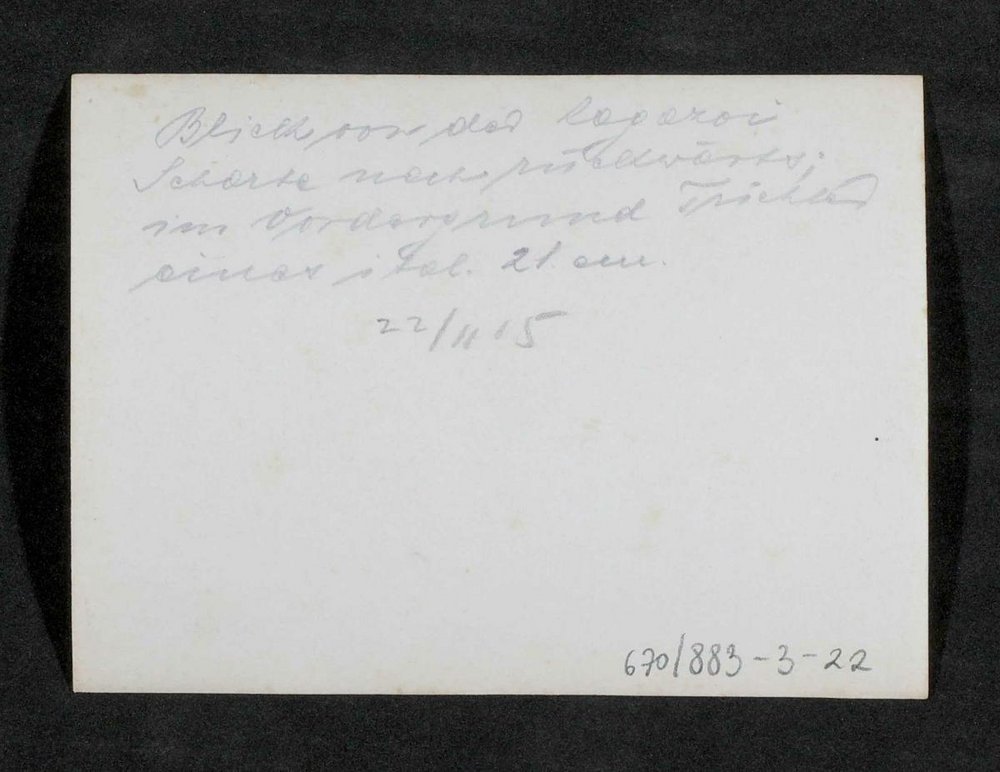 Blick von der Lagazoi
Scharte nach rückwärts;
im Vordergrund Trichter
einer ital. 21 cm.
22/11 15
670/883-3-22